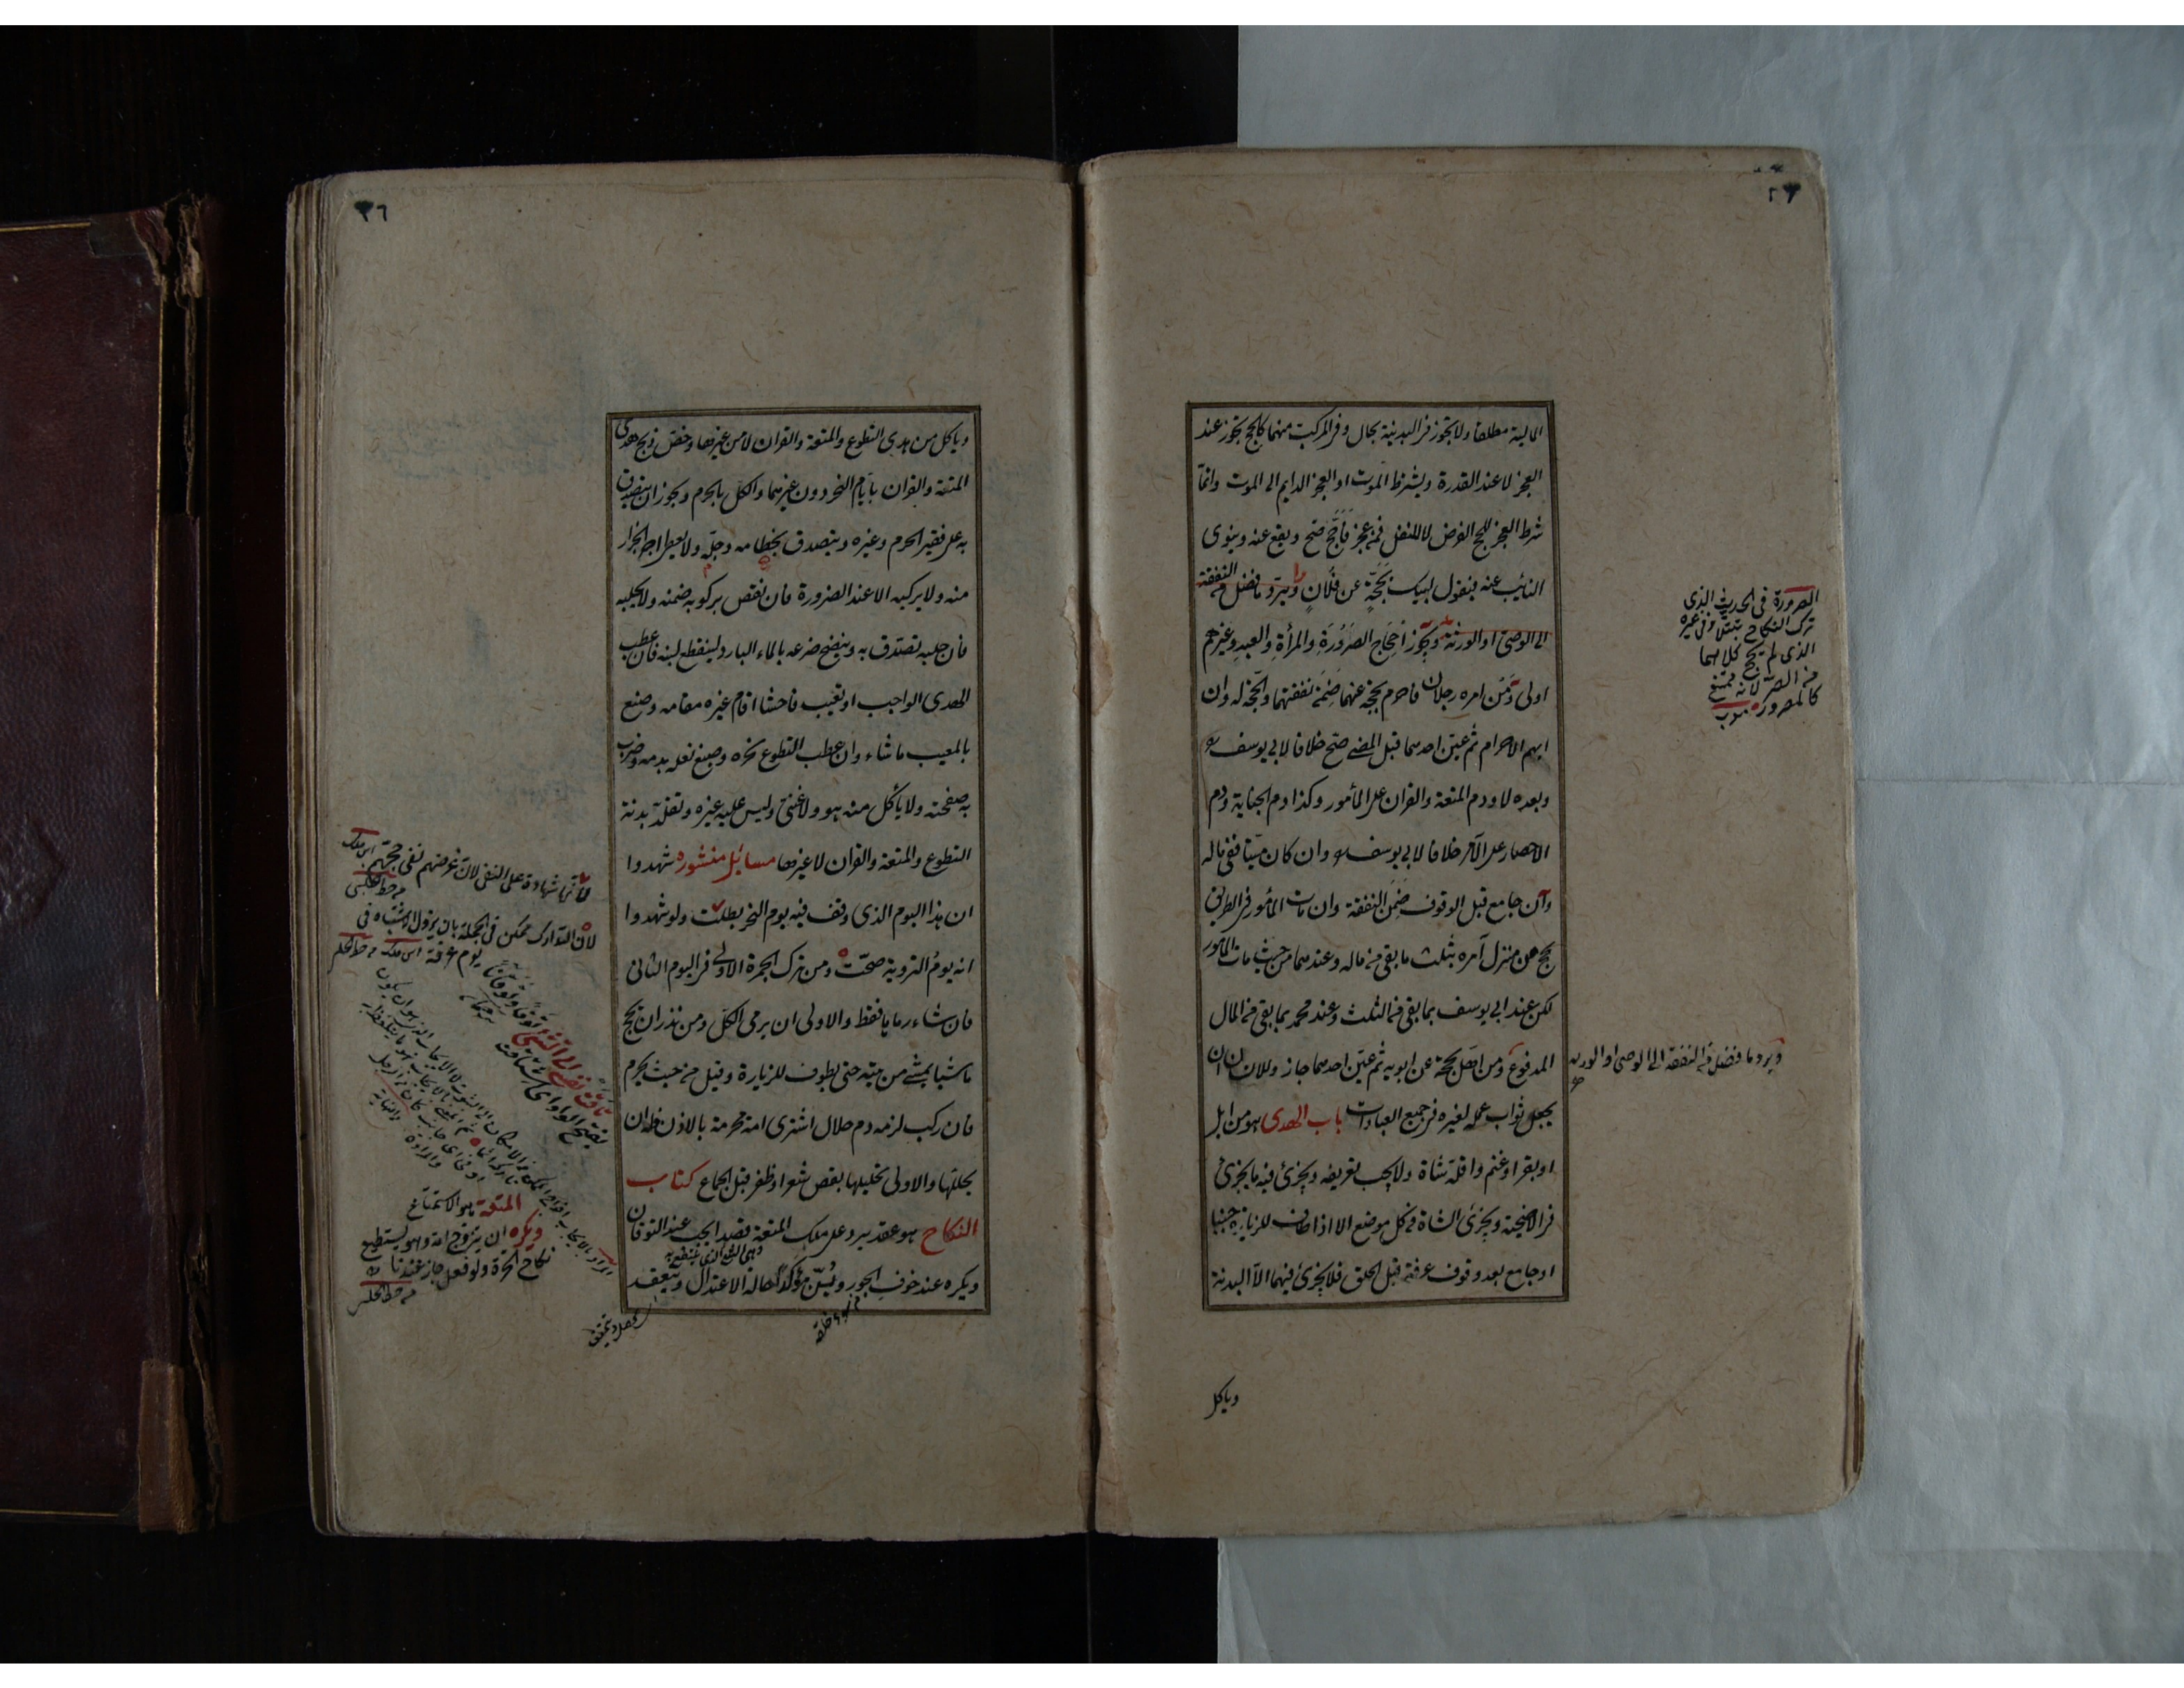 المالية مطلقا ولا يجوز في البدنية بحال وفي المركب منهما كالحج يجوز عند
العجز لا عند القدرة ويشترط الموت او العجز الدايم الى الموت وانما
شرط العجز للحج الفرض لا للنفل فمن عجز فاحج صح ويقع عنه وينوى
النائب عنه فيقول لبيك بحجة عن فلان ويرد ما فضل من النفقة
الى الوصى او الورثة ويجوز احجاج الصرورة والمرأة والعبد وغيرهم
اولى ومن امره رجلان فاحرم بحجة عنهما ضمن نفقتهما والحجة له وان
ابهم الاحرام ثم عين احدهما قبل المضى صح خلافا لابى يوسف
وبعده لا ودم المتعة والقران على المأمور وكذا دم الجناية ودم
الاحصار على الآمر خلافا لابى يوسف وان كان ميتا ففى ماله
وان جامع قبل الوقوف ضمن النفقة وان مات المأمور فى الطريق
يحج عن منزل آمره بثلث ما بقى من ماله وعندهما من حيث مات المأمور
لكن عند ابى يوسف بما بقى من الثلث وعند محمد بما بقى من المال
المدفوع ومن اهل بحجة عن ابويه ثم عين احدهما جاز وللانسان ان
يجعل ثواب عمله لغيره فى جميع العبادات باب الهدى هو من ابل
او بقر او غنم واقله شاة ولا يجب تعريفه ويجزئ فيه ما يجزئ
فى الاضحية ويجزئ الشاة فى كل موضع الا اذا طاف للزيارة جنبا
او جامع بعد وقوف عرفة قبل الحلق فلا يجزئ فيهما الا البدنة
وياكل
الصرورة فى الحديث الذى
ترك النكاح تبتلا وفى غيره
الذى لم يحج كلاهما
من الصر لانه ممتنع
كالمصرور
ويرد ما فضل من النفقة الى الوصى او الورثة
٢٦
وياكل من هدى التطوع والمتعة والقران لا من غيرها وخص ذبح هدى
المتعة والقران بايام النحر دون غيرهما والكل بالحرم ويجوز ان يتصدق
به على فقير الحرم وغيره ويتصدق بخطامه وجله ولا يعطى اجر الجزار
منه ولا يركبه الا عند الضرورة فان نقص بركوبه ضمنه ولا يحلبه
فان حلبه تصدق به وينضح ضرعه بالماء البارد لينقطع لبنه فان عطب
الهدى الواجب او تعيب فاحشا اقام غيره مقامه وصنع
بالمعيب ما شاء وان عطب التطوع نحره وصبغ نعله بدمه وضرب
به صفحته ولا ياكل منه هو ولا غنى وليس عليه غيره وتقلد بدنة
التطوع والمتعة والقران لا غيرها مسائل منثورة شهدوا
ان هذا اليوم الذى وقف فيه يوم النحر بطلت ولو شهدوا
انه يوم التروية صحت ومن ترك الجمرة الاولى فى اليوم الثانى
فان شاء رماها فقط والاولى ان يرمى الكل ومن نذر ان يحج
ماشيا يمشى من بيته حتى يطوف للزيارة وقيل من حيث يحرم
فان ركب لزمه دم حلال اشترى امة محرمة بالاذن فله ان
يحللها والاولى تحليلها بقص شعر او ظفر قبل الجماع كتاب
النكاح هو عقد يرد على ملك المتعة قصدا يجب عند التوقان
ويكره عند خوف الجور ويسن مؤكدا حالة الاعتدال وينعقد
لانها شهادة على النفى لان غرضهم نفى حجتهم
لان التدارك ممكن فى الجملة بان يزول الاشتباه فى
يوم عرفة
المتعة هو الاستمتاع
ويكره ان يتزوج امة وهو يستطيع
نكاح الحرة ولو فعل جاز عندنا